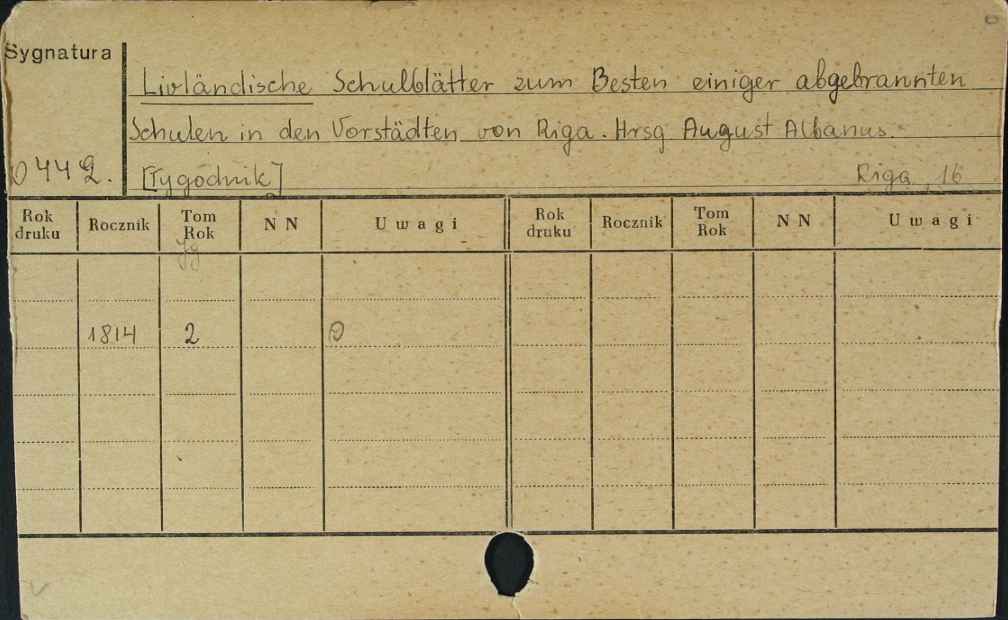 Sygnatura
Livländische Schulblätter zum Besten einiger abgebrannten
Schulen in den Vorstädten von Riga. Hrsg August Albanus.
0442.
[Tygodnik]
Riga, 16
Rok druku Rocznik Tom Rok N N Uwagi Rok druku Rocznik Tom Rok N N Uwagi
Jg
1814 2